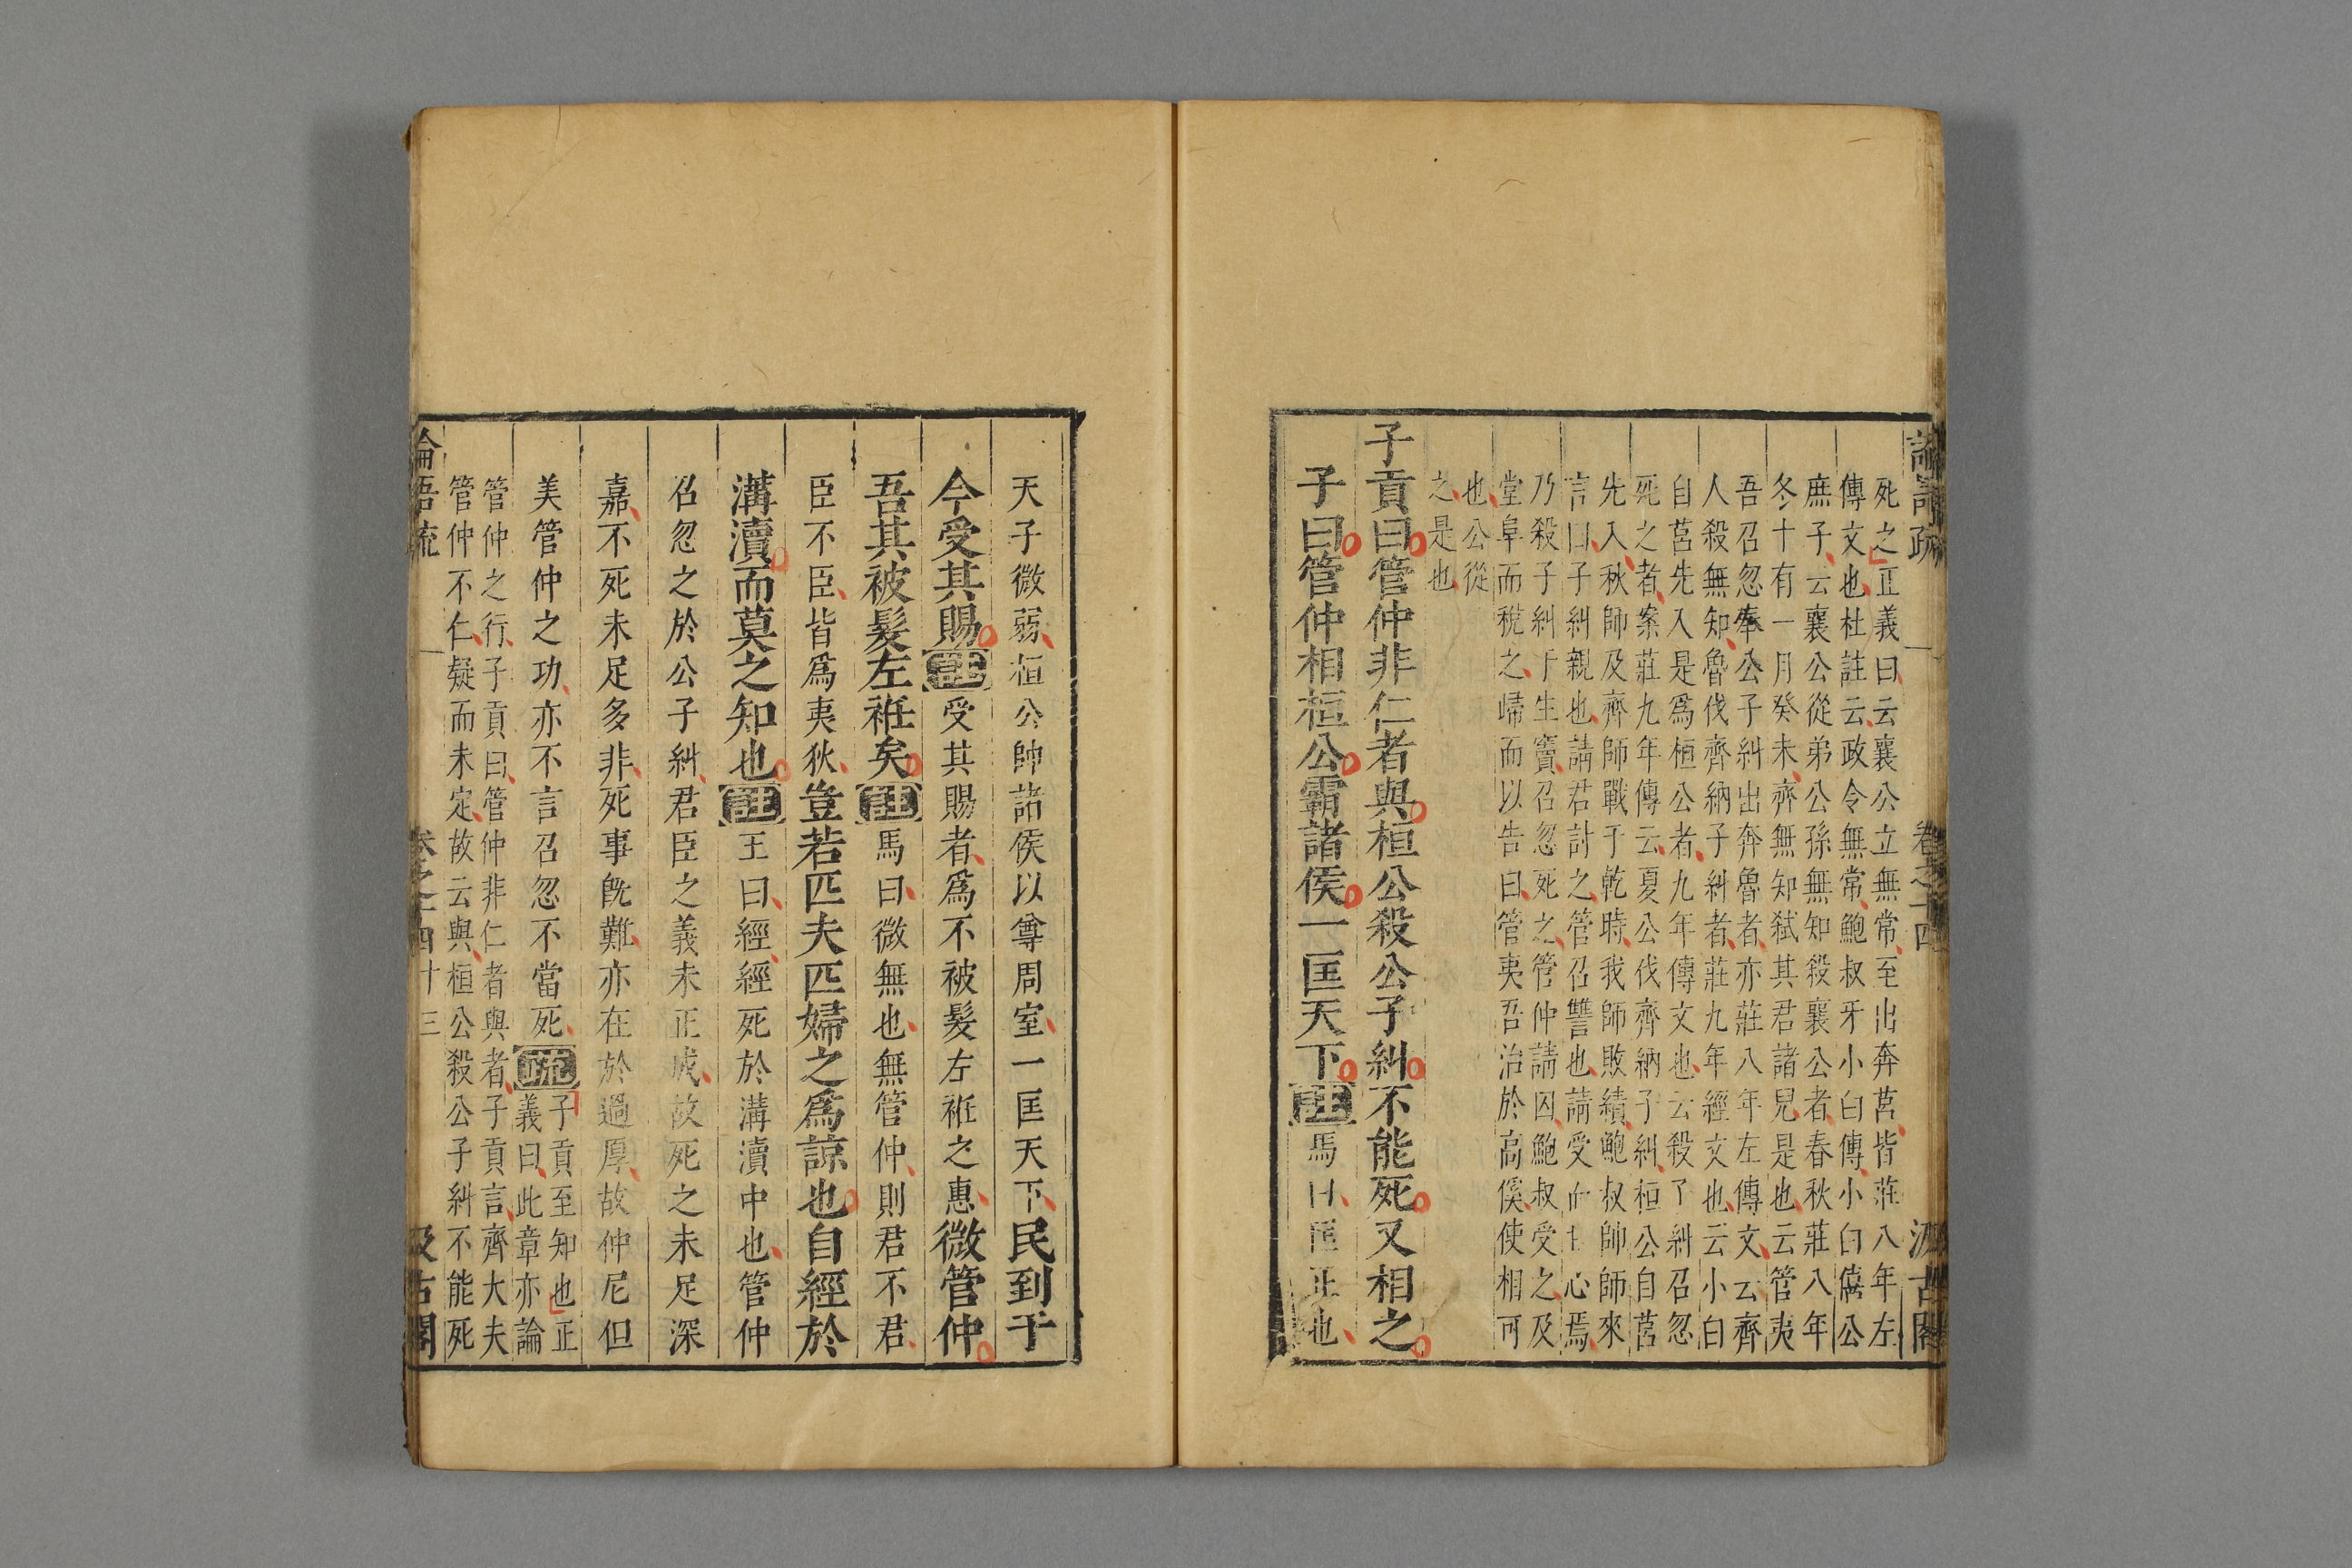 論語疏　卷之十四　汲古閣
死之正義曰云襄公立無常至出奔莒皆莊八年左
傳文也杜註云政令無常鮑叔牙小白傳小白僖公
庶子云襄公從弟公孫無知殺襄公者春秋莊八年
冬十有一月癸未齊無知弑其君諸兒是也云管夷
吾召忽奉公子糾出奔魯者亦莊八年左傳文云齊
人殺無知魯伐齊納子糾者莊九年經文也云小白
自莒先入是爲桓公者九年傳文也云殺子糾召忽
死之者案莊九年傳云夏公伐齊納子糾桓公自莒
先入秋師及齊師戰于乾時我師敗績鮑叔帥師來
言曰子糾親也請君討之管召讐也請受而甘心焉
乃殺子糾于生竇召忽死之管仲請囚鮑叔受之及
堂阜而稅之歸而以告曰管夷吾治於高傒使相可
也公從
之是也
子貢曰管仲非仁者與桓公殺公子糾不能死又相之
子曰管仲相桓公霸諸侯一匡天下註馬曰匡正也
天子微弱桓公帥諸侯以尊周室一匡天下民到于
今受其賜註受其賜者爲不被髮左衽之惠微管仲
吾其被髮左衽矣註馬曰微無也無管仲則君不君
臣不臣皆爲夷狄豈若匹夫匹婦之爲諒也自經於
溝瀆而莫之知也註王曰經經死於溝瀆中也管仲
召忽之於公子糾君臣之義未正成故死之未足深
嘉不死未足多非死事既難亦在於過厚故仲尼但
美管仲之功亦不言召忽不當死疏子貢至知也正
義曰此章亦論
管仲之行子貢曰管仲非仁者與者子貢言齊大夫
管仲不仁疑而未定故云與桓公殺公子糾不能死
論語疏　卷之十四　十三　汲古閣